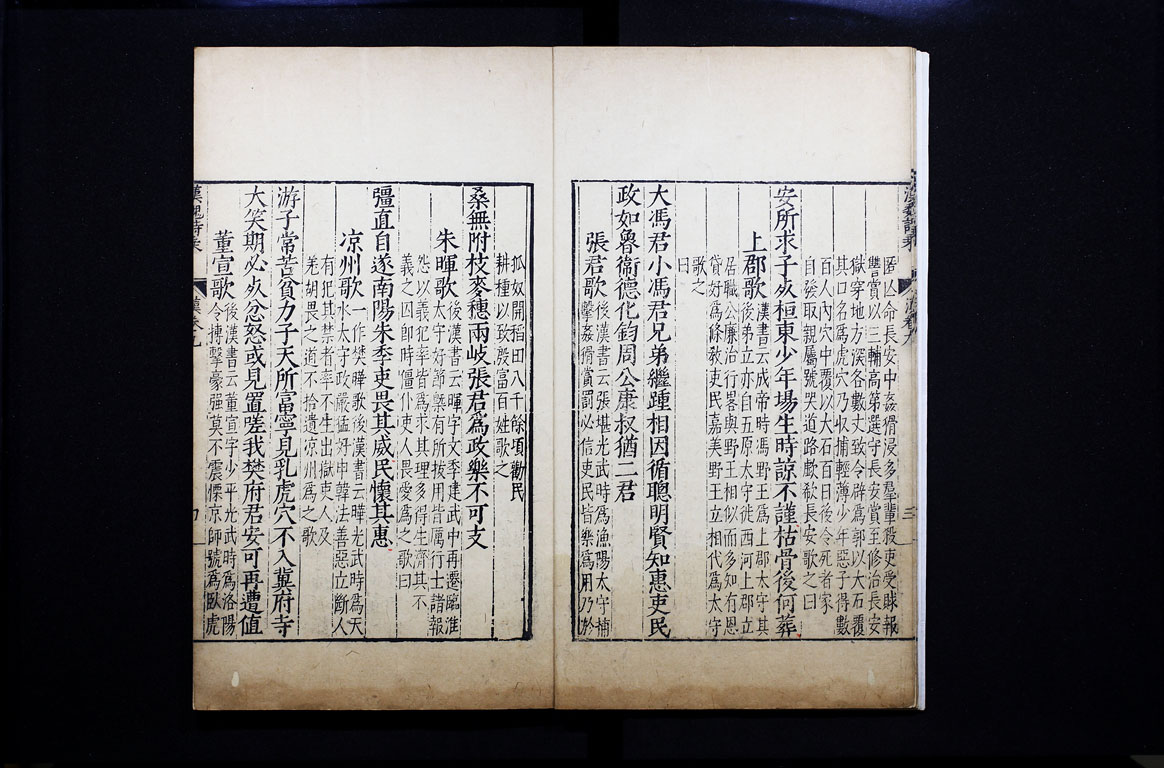 匿亾命長安中姦猾浸多羣輩殺吏受賕報
讐賞以三輔高第選守長安賞至修治長安
獄穿地方深各數丈致令辟爲郭以大石覆
其口名爲虎穴乃收捕輕薄少年惡子得數
百人內穴中覆以大石百日後令死者家
自發取親屬號哭道路歔欷長安歌之曰
安所求子㱙桓東少年場生時諒不謹枯骨後何葬
上郡歌
漢書云成帝時馮野王爲上郡太守其
後弟立亦自五原太守徙西河上郡立
居職公廉治行畧與野王相似而多知有恩
貸好爲條敎吏民嘉美野王立相代爲太守
歌之
曰
大馮君小馮君兄弟繼踵相因循聰明賢知惠吏民
政如魯衞德化鈞周公康叔猶二君
張君歌
後漢書云張堪光武時爲漁陽太守捕
擊姦猾賞罰必信吏民皆樂爲用乃於
狐奴開稻田八千餘頃勸民
耕種以致殷富百姓歌之
桑無附枝麥穗兩岐張君爲政樂不可支
朱暉歌
後漢書云暉字文季建武中再遷臨淮
太守好節槩有所拔用皆厲行士諸報
怨以義犯率皆爲求其理多得生濟其不
義之囚卽時僵仆吏人畏愛爲之歌曰
彊直自遂南陽朱季吏畏其威民懷其惠
凉州歌
一作樊曄歌後漢書云曄光武時爲天
水太守政嚴猛好申韓法善惡立斷人
有犯其禁者率不生出獄吏人及
羌胡畏之道不拾遺凉州爲之歌
游子常苦貧力子天所富寧見乳虎穴不入冀府寺
大笑期必㱙忿怒或見置嗟我樊府君安可再遭值
董宣歌
後漢書云董宣字少平光武時爲洛陽
令搏擊豪强莫不震慄京師號爲臥虎
漢魏詩乘
漢卷九